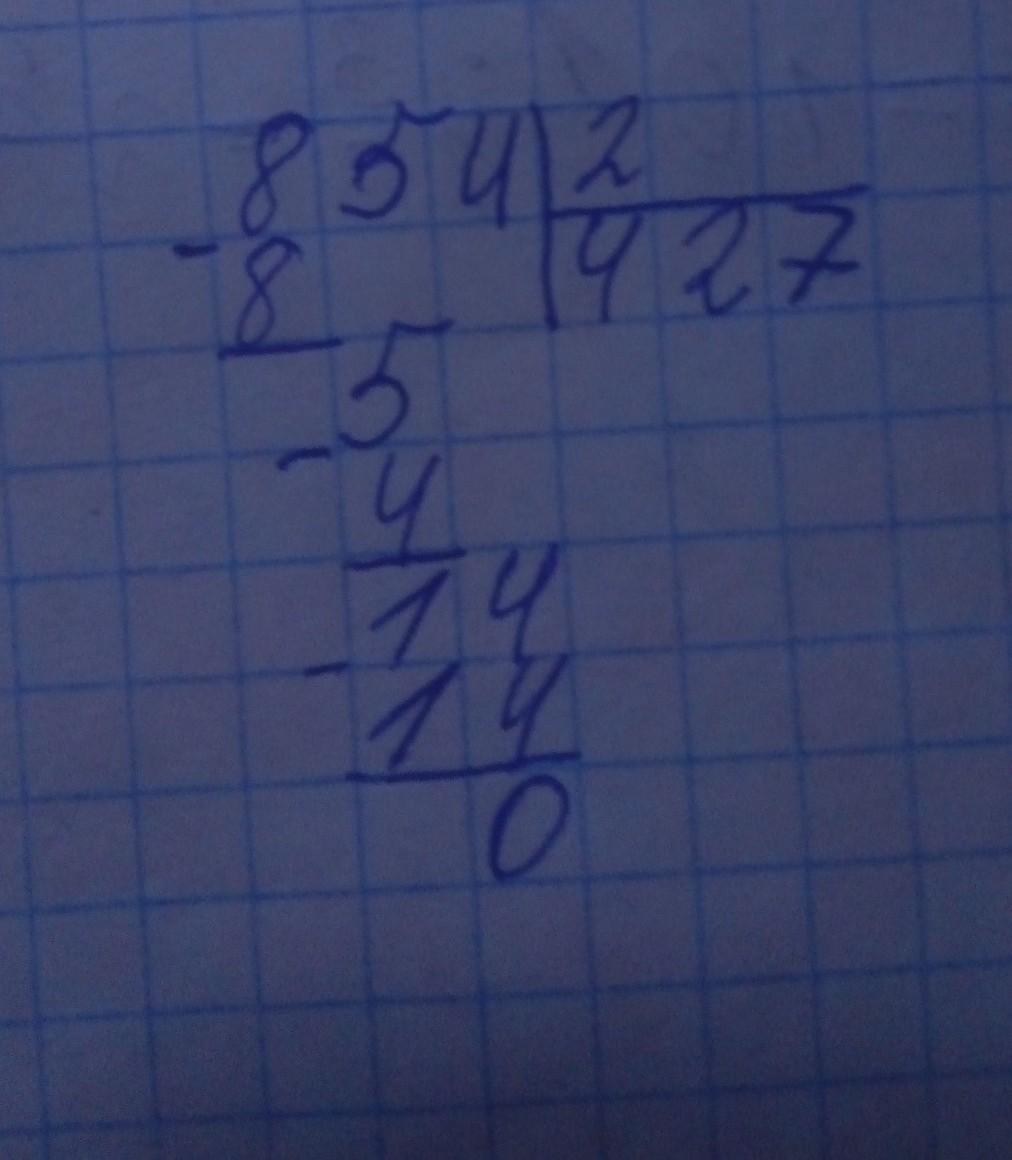 854 2
- 8 427
5
- 4
14
- 14
0